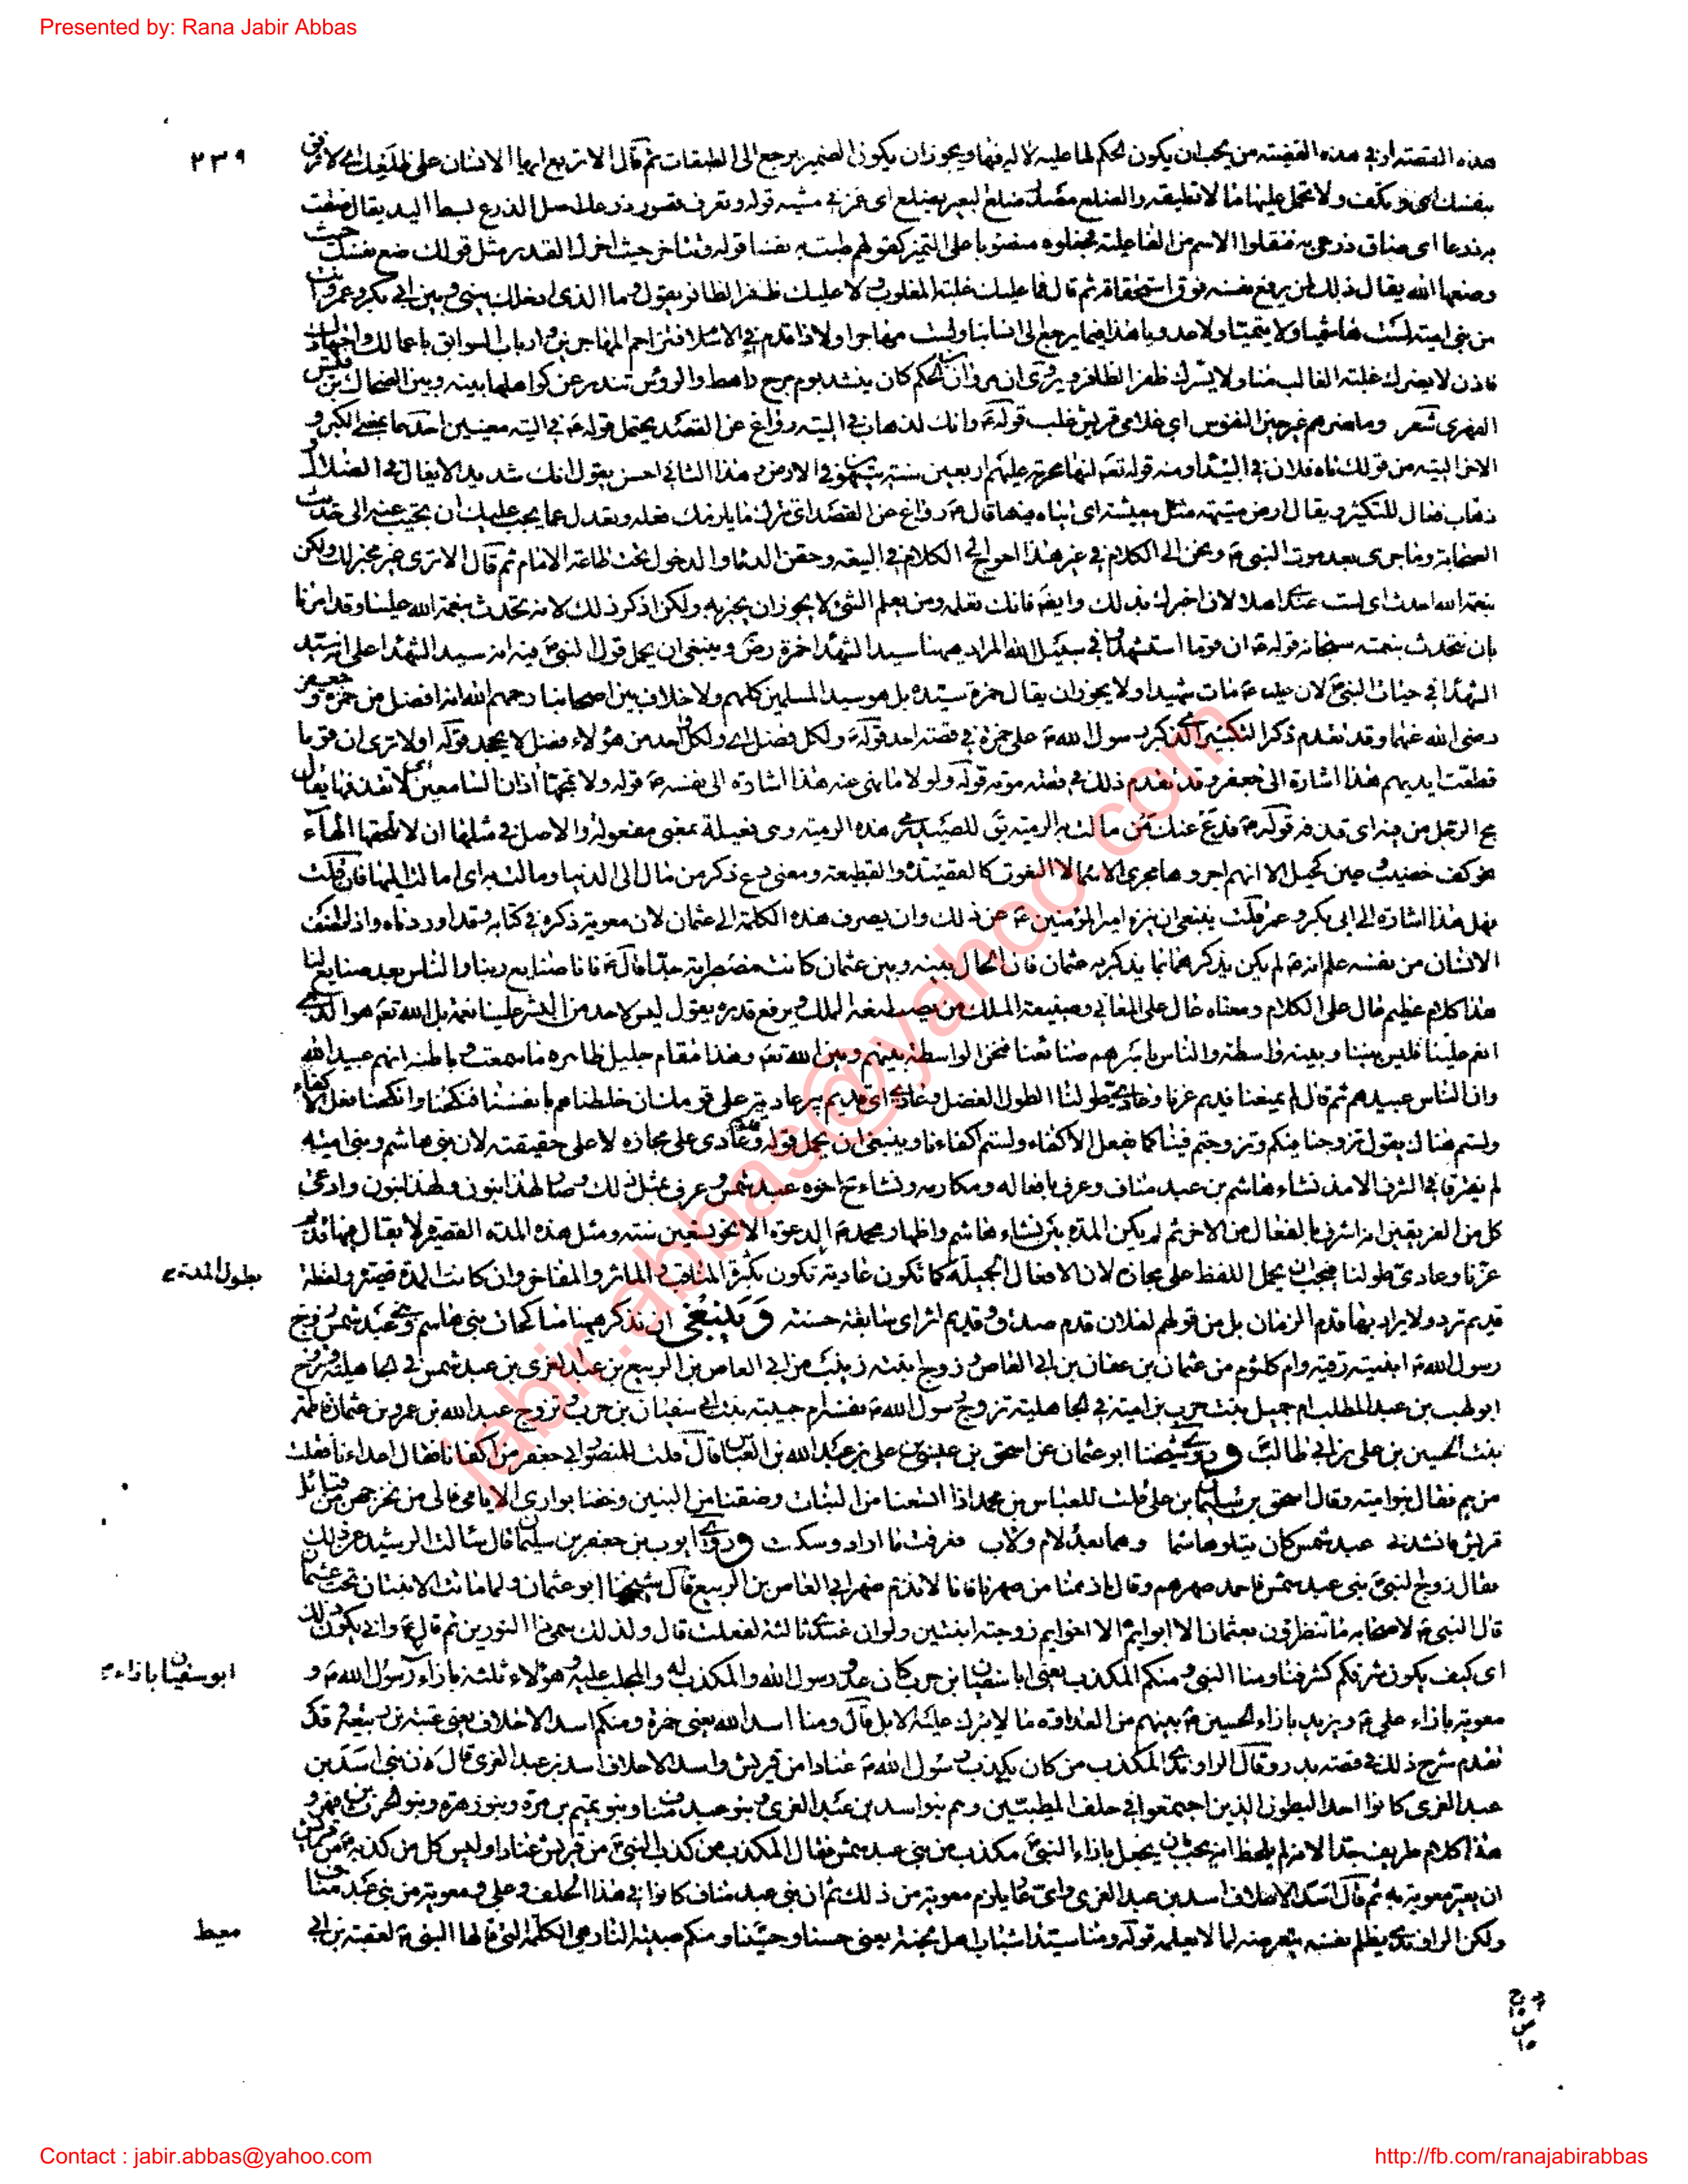 Presented by: Rana Jabir Abbas
٢٣٩
هذه القصة او في هذه القضية من يجب ان يكون الحكم لها عليه لا له فيها ويجوز ان يكون الضمير يرجع الى الطبقات ثم قال الا تربع ايها الانسان على ظلعك اي الا ترفق
بنفسك اي وتكف ولا تحمل عليها ما لا تطيقه والضلع مصدر ضلع البعير يضلع اي غمز في مشيه قوله وتعرف قصور ذرعك اصل الذرع بسط اليد يقال ضقت
به ذرعا اي ضاق ذرعي به فنقلوا الاسم من الفاعلية فجعلوه منصوبا على التمييز كقولهم طبت به نفسا قوله وتتاخر حيث اخرك القدر مثل قولك ضع نفسك حيث
وضعها الله يقال ذلك لمن يرفع نفسه فوق استحقاقه ثم قال فما عليك غلبة المغلوب ولا عليك ظفر الظافر يقول وما الذي ادخلك بيني وبين ابي بكر وعمر وانت
من بني امية لست هاشميا ولا تيميا ولا عدويا هذا فيما يرجع الى انسابنا ولست مهاجرا ولا ذا قدم في الاسلام فتزاحم المهاجرين وارباب السوابق باعمالك واجتهادك
فاذن لا يضرك غلبة الغالب منا ولا يسرك ظفر الظافر ويروى ان مروان بن الحكم كان ينشد يوم مرج راهط والرؤس تندر عن كواهلها بينه وبين الضحاك بن قيس
الفهري شعر وما ضرهم غير حين النفوس اي غلامي قريش غلب قوله ع وانك لذهاب في التيه رواغ عن القصد يحتمل قوله ع في التيه معنيين احدهما بمعنى الكبر و
الاخر التيه من قولك تاه فلان في البيداء ومنه قوله تعالى فانها محرمة عليهم اربعين سنة يتيهون في الارض وهذا الثاني احسن يقول انك شديد الايغال في الضلال
ذهاب فعال للتكثير ويقال ارض متيهة مثل معيشة اي يتاه فيها قال ع رواغ عن القصد اي تترك ما يلزمك فعله وتعدل عما يجب عليك ان تجيب عنه الى حديث
الصحابة وما جرى بعد موت النبي ص ونحن الى الكلام في غير هذا احوج الى الكلام في البيعة وحقن الدماء والدخول تحت طاعة الامام ثم قال الا ترى غير مخبر لك ولكن
بنعمة الله احدث اي لست عندي اهلا لان اخبرك بذلك وايضا فانك تعلمه ومن يعلم الشيء لا يجوز ان يخبر به ولكن اذكر ذلك لانه تحدث بنعمة الله علينا وقد امرنا
بان نتحدث بنعمته سبحانه قوله ع ان قوما استشهدوا في سبيل الله المراد ههنا سيد الشهداء حمزة رض وينبغي ان يحمل قول النبي ص فيه انه سيد الشهداء على انه سيد
الشهداء في حياة النبي ص لان عليا ع مات شهيدا ولا يجوز ان يقال حمزة سيده بل هو سيد المسلمين كلهم ولا خلاف بين اصحابنا رحمهم الله انه افضل من حمزة وجعفر
رضي الله عنهما وقد تقدم ذكر التكبير الذي كبره رسول الله ص على حمزة في قصة احد قوله ع ولكل فضل اي ولكل واحد من هؤلاء فضل لا يجحد قوله اولا ترى ان قوما
قطعت ايديهم هذا اشارة الى جعفر وقد تقدم ذلك في قصة موته قوله ولولا ما نهى عنه هذا اشارة الى نفسه ع قوله ولا تمجها اذان السامعين اي لا تقذفها يقال
مج الرجل من فيه اي قذفه قوله ع فدع عنك من مالت به الرمية يق للصيد يرمى هذه الرمية وهي فعيلة بمعنى مفعولة والاصل في مثلها ان لا تلحقها الهاء
نحو كف خضيب وعين كحيل الا انهم اجروها مجرى الاسماء لا النعوت كالقصيدة والقطيعة ومعنى دع ذكر من مال الى الدنيا ومالت به اي امالته اليها فان قلت
فهل هذا اشارة الى ابي بكر وعمر قلت ينبغي ان ينزه امير المؤمنين ع عن ذلك وان يصرف هذه الكلمة الى عثمان لان معوية ذكره في كتابه وقد اوردناه واذا انصف
الانسان من نفسه علم انه ع لم يكن يذكرهما بما يذكر به عثمان فان الحال بينه وبين عثمان كانت مضطربة جدا قال ع فانا صنايع ربنا والناس بعد صنايع لنا
هذا كلام عظيم عال على الكلام ومعناه عال على المعاني وصنيعة الملك من يصطنعه الملك ويرفع قدره يقول ليس لاحد من البشر علينا نعمة بل الله تعالى هو الذي
انعم علينا فليس بيننا وبينه واسطة والناس باسرهم صنائعنا فنحن الواسطة بينهم وبين الله تعالى وهذا مقام جليل ظاهره ما سمعت وباطنه انهم عبيد الله
وان الناس عبيدهم ثم قال لم يمنعنا قديم عزنا وعادي طولنا الطول الفضل وعادي اي قديم بئر عادية على قومك ان خلطناهم بانفسنا فنكحنا وانكحنا فعل الاكفاء
ولستم هناك يقول تزوجنا منكم وتزوجتم فينا كما يفعل الاكفاء ولستم اكفاءنا وينبغي ان يحمل قوله وعادي على مجازه لا على حقيقته لان بني هاشم وبني امية
لم يفترقا في الشرف الا مذ نشاء هاشم بن عبد مناف وعرف بافعاله ومكارمه ونشاء ح اخوه عبد شمس وعرف بمثل ذلك وصار لهذا بنون ولهذا بنون وادعى
كل من الفريقين انه اشرف بالفعال من الاخر ثم لم يكن المدة بين نشاء هاشم واظهار محمد ص الدعوة الا نحو تسعين سنة ومثل هذه المدة القصيرة لا يقال فيها قديم
عزنا وعادي طولنا فيجب ان يحمل اللفظ على مجازه لان الافعال الجميلة كما تكون عادية بطول المدة تكون بكثرة المناقب والمآثر والمفاخر وان كانت المدة قصيرة ولفظة
قديم ترد ولا يراد بها قدم الزمان بل من قولهم لفلان قدم صدق وقديم اثر اي سابقة حسنة وينبغي ان نذكر ههنا مناكحات بني هاشم وبني عبد شمس زوج
رسول الله ص ابنتيه رقية وام كلثوم من عثمان بن عفان بن ابي العاص وزوج ابنته زينب من ابي العاص بن الربيع بن عبد العزى بن عبد شمس في الجاهلية وتزوج
ابو لهب بن عبد المطلب ام جميل بنت حرب بن امية في الجاهلية وتزوج رسول الله ص نفسه ام حبيبة بنت ابي سفيان بن حرب وتزوج عبد الله بن عمرو بن عثمان فاطمة
بنت الحسين بن علي بن ابي طالب ع وروى شيخنا ابو عثمان عن اسحق بن عيسى بن علي بن عبد الله بن العباس قال قلت للمنصور ابي جعفر من اكفاءنا فقال اعداءنا فقلت
من هم فقال بنو امية وقال اسحق بن سليمان بن علي قلت للعباس بن محمد اذا اتسعنا من البنات وضقنا من البنين وخفنا بوار الايامى فالى من نخرجهن من قبائل
قريش فانشدني عبد شمس كان يتلو هاشما وهما بعد لام ولاب فعرفت ما اراد وسكت وروى ايوب بن جعفر بن سليمان قال سالت الرشيد عن ذلك
فقال زوج النبي ص بني عبد شمس فاحمد صهرهم وقال ما ذممنا من صهرنا فانا لا نذم صهر ابي العاص بن الربيع قال شيخنا ابو عثمان ولما ماتت الابنتان تحت عثمان
قال النبي ص لاصحابه ما تنتظرون بعثمان الا ابو ايم الا اخو ايم زوجته ابنتين ولو ان عندي ثالثة لفعلت قال ولذلك سمي ذا النورين ثم قال ع وانى يكون ذلك
اي كيف يكون شرفكم كشرفنا ومنا النبي ومنكم المكذب يعني ابا سفيان بن حرب كان عدو رسول الله والمكذب له والمجلب عليه وهؤلاء ثلثة بازاء رسول الله ص و
ابو سفيان بازاءه
معوية بازاء علي ع ويزيد بازاء الحسين ع بينهم من العداوة ما لا يبرك عليه الابل قال ومنا اسد الله يعني حمزة ومنكم اسد الاحلاف يعني عتبة بن ربيعة وقد
تقدم شرح ذلك في قصة بدر وقال الراوندي المكذب من كان يكذب رسول الله ص عنادا من قريش واسد الاحلاف اسد بن عبد العزى قال لان بني اسد بن
عبد العزى كانوا احد البطون الذين اجتمعوا في حلف المطيبين وهم بنو اسد بن عبد العزى وبنو عبد مناف وبنو تيم بن مرة وبنو زهرة وبنو الحرث بن فهر و
هذا كلام طريف جدا لانه لم يلحظ انه يجب ان يجعل بازاء النبي ص مكذب من بني عبد شمس فقال المكذب من كذب النبي ص من قريش عنادا وليس كل من كذبه ع من قريش
ان يعير معوية به ثم قال اسد الاحلاف اسد بن عبد العزى واي عار يلزم معوية من ذلك ثم ان بني عبد مناف كانوا في هذا الحلف وعلي ومعوية من بني عبد مناف
ولكن الراوندي يظلم نفسه بتعرضه لما لا يعلمه قوله ومنا سيدا شباب اهل الجنة يعني حسنا وحسينا ومنكم صبية النار هي الكلمة التي قالها النبي ص لعقبة بن ابي
معيط
jabir.abbas@yahoo.com
Contact : jabir.abbas@yahoo.com
http://fb.com/ranajabirabbas